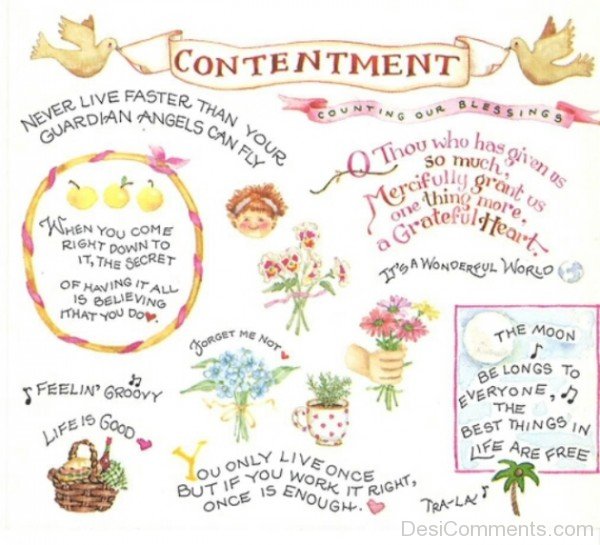 CONTENTMENT
COUNTING OUR BLESSINGS
NEVER LIVE FASTER THAN YOUR
GUARDIAN ANGELS CAN FLY
O Thou who has given us
so much,
Mercifully grant us
one thing more,
a Grateful Heart.
WHEN YOU COME
RIGHT DOWN TO
IT, THE SECRET
OF HAVING IT ALL
IS BELIEVING
THAT YOU DO.
IT'S A WONDERFUL WORLD
FORGET ME NOT
THE MOON
BELONGS TO
EVERYONE,
THE
BEST THINGS IN
LIFE ARE FREE
FEELIN' GROOVY
LIFE IS GOOD
YOU ONLY LIVE ONCE
BUT IF YOU WORK IT RIGHT,
ONCE IS ENOUGH.
TRA-LA
DesiComments.com